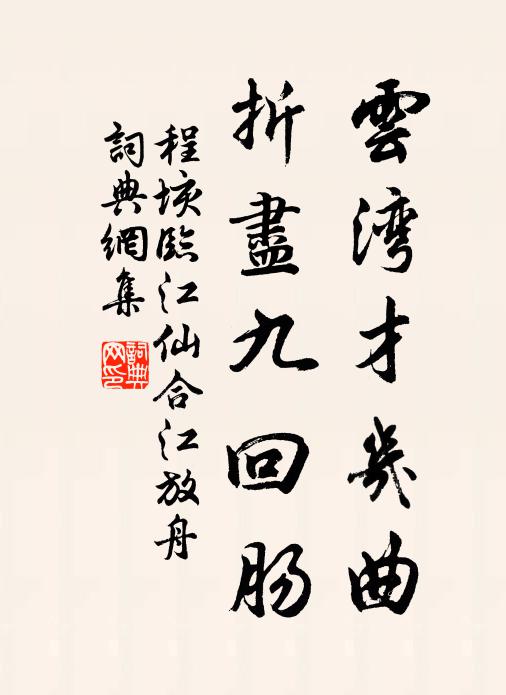 雲湾才幾曲
折盡九回肠
程垓臨江仙合江放舟
詞典網集
詞典網印